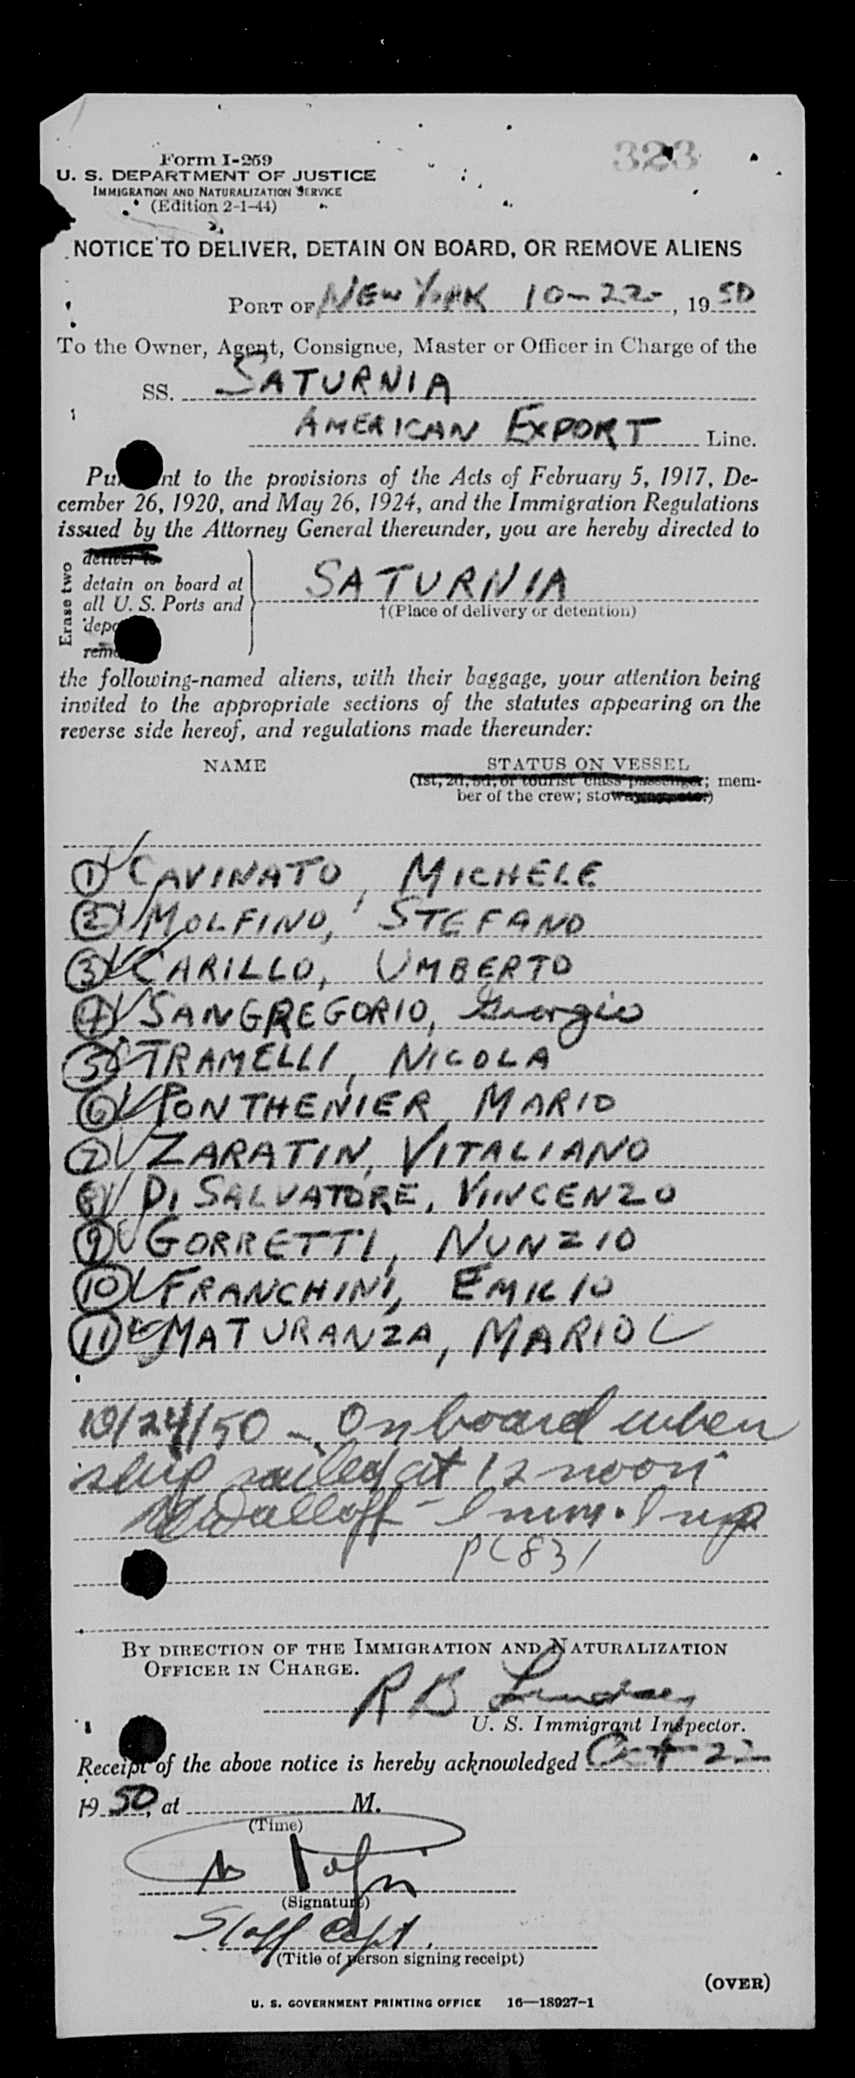 323
Form I-259
U. S. DEPARTMENT OF JUSTICE
IMMIGRATION AND NATURALIZATION SERVICE
(Edition 2-1-44)
NOTICE TO DELIVER, DETAIN ON BOARD, OR REMOVE ALIENS
PORT OF NEW YORK 10-22-, 19 50
To the Owner, Agent, Consignee, Master or Officer in Charge of the
SS. SATURNIA
AMERICAN EXPORT Line.
Pu nt to the provisions of the Acts of February 5, 1917, De-
cember 26, 1920, and May 26, 1924, and the Immigration Regulations
issued by the Attorney General thereunder, you are hereby directed to
Erase two
deliver to
detain on board at
all U. S. Ports and
depo
remo
SATURNIA
†(Place of delivery or detention)
the following-named aliens, with their baggage, your attention being
invited to the appropriate sections of the statutes appearing on the
reverse side hereof, and regulations made thereunder:
NAME STATUS ON VESSEL
(1st, 2d, 3d, or tourist class passenger; mem-
ber of the crew; stow
1 CAVINATO, MICHELE
2 MOLFINO, STEFANO
3 CARILLO, UMBERTO
4 SANGREGORIO, Giorgio
5 TRAMELLI, NICOLA
6 PONTHENIER MARIO
7 ZARATIN, VITALIANO
8 DI SALVATORE, VINCENZO
9 GORRETTI, NUNZIO
10 FRANCHINI, EMILIO
11 MATURANZA, MARIO
10/24/50 - On board when
ship sailed at 12 noon
- Imm. Insp
PC831
BY DIRECTION OF THE IMMIGRATION AND NATURALIZATION
OFFICER IN CHARGE.
R B Lindsey
U. S. Immigrant Inspector.
Receipt of the above notice is hereby acknowledged Oct 22
19 50, at M.
(Time)
(Signature)
Staff Capt.
(Title of person signing receipt)
(OVER)
U. S. GOVERNMENT PRINTING OFFICE 16—18927-1